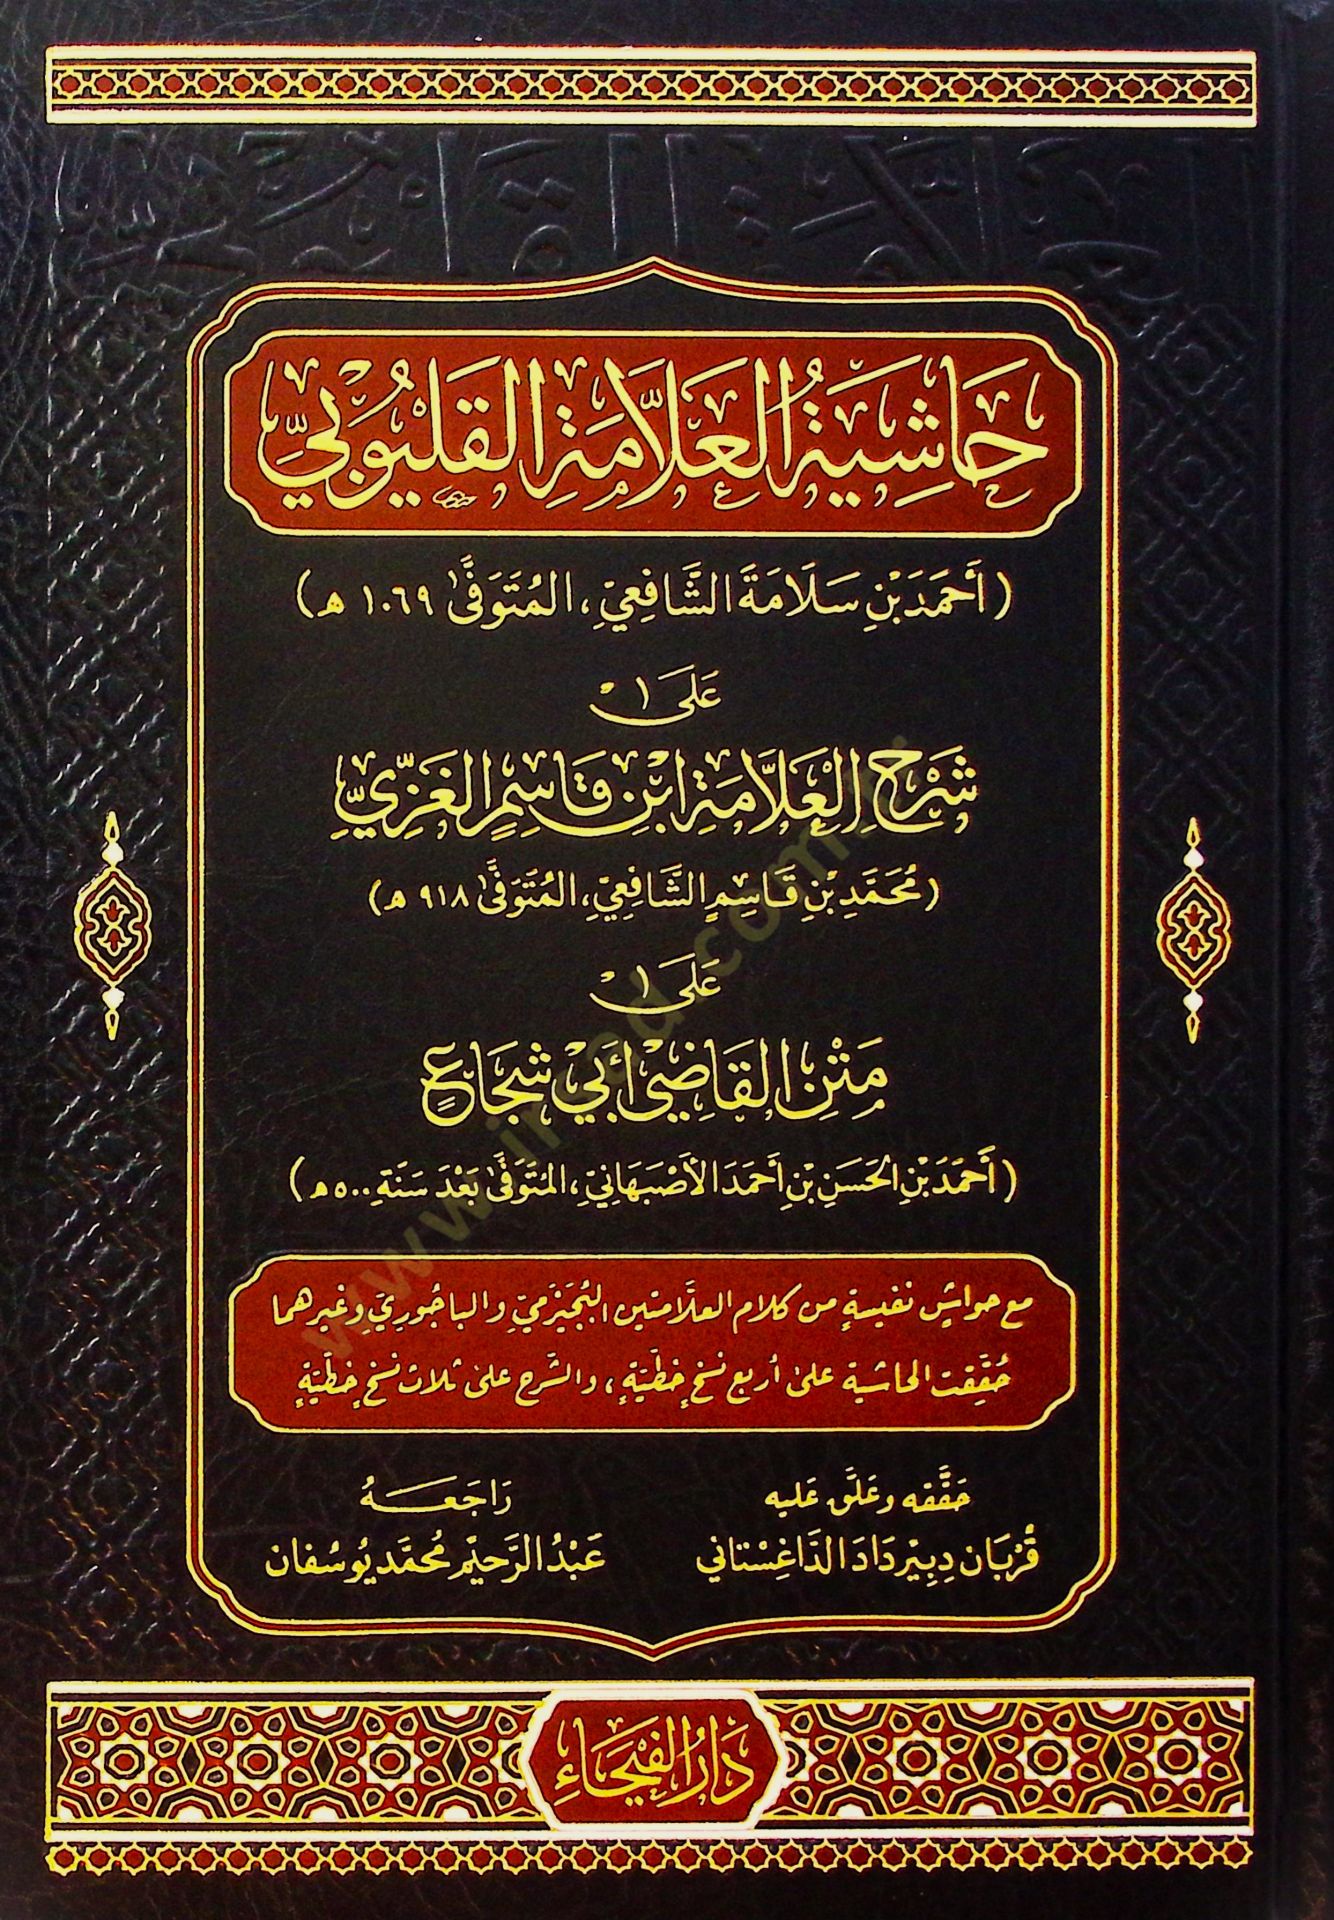 حَاشِيَةُ العَلَّامَةِ القَلْيُوبِيِّ
(أَحْمَدَ بْنِ سَلَامَةَ الشَّافِعِيِّ، المُتَوَفَّى ١٠٦٩ هـ)
عَلَى
شَرْحِ العَلَّامَةِ ابْنِ قَاسِمٍ الغَزِّيِّ
(مُحَمَّدِ بْنِ قَاسِمٍ الشَّافِعِيِّ، المُتَوَفَّى ٩١٨ هـ)
عَلَى
مَتْنِ القَاضِي أَبِي شُجَاعٍ
(أَحْمَدَ بْنِ الحَسَنِ بْنِ أَحْمَدَ الأَصْبَهَانِيِّ، المُتَوَفَّى بَعْدَ سَنَةِ ٥٠٠ هـ)
مع حواشٍ نفيسةٍ من كلام العلَّامتين البُجَيْرَمِيِّ والباجُورِيِّ وغيرهما
حُقِّقت الحاشية على أربع نسخٍ خطِّيَّةٍ، والشَّرح على ثلاث نسخٍ خطِّيَّةٍ
حَقَّقه وعَلَّق عَليه
قُرْبَان دِبِيْر دَادَ الدَّاغِسْتاني
رَاجَعَهُ
عَبْدُ الرَّحِيْم مُحَمَّد يُوسُفَان
دَارُ الفَيْحَاءِ
www.irsad.com.tr